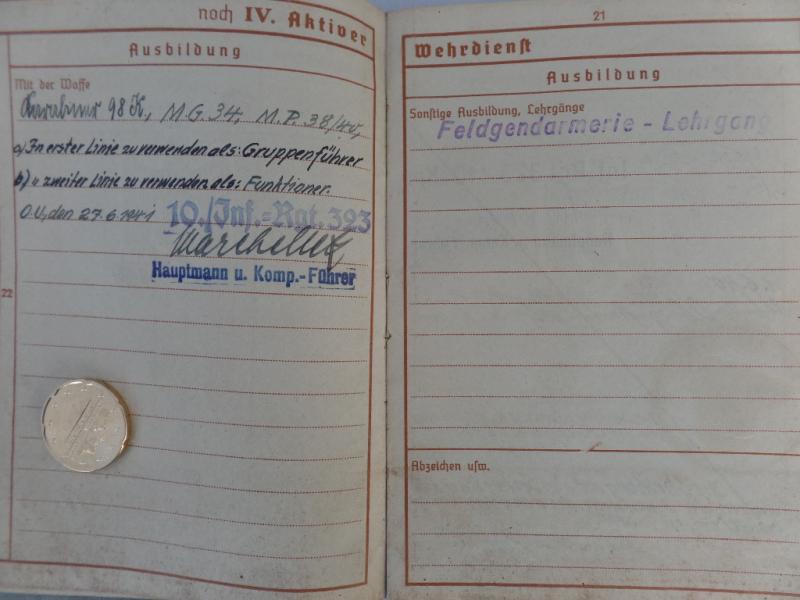 noch IV. Aktiver
Ausbildung
Mit der Waffe
Karabiner 98 K, M.G. 34, M.P. 38/40,
a) In erster Linie zu verwenden als: Gruppenführer
b) " zweiter Linie zu verwenden als: Funktioner.
O.U., den 27.6.1941 10./Inf.=Rgt. 393
Hauptmann u. Komp.-Führer
22
21
Wehrdienst
Ausbildung
Sonstige Ausbildung, Lehrgänge
Feldgendarmerie - Lehrgang
Abzeichen usw.